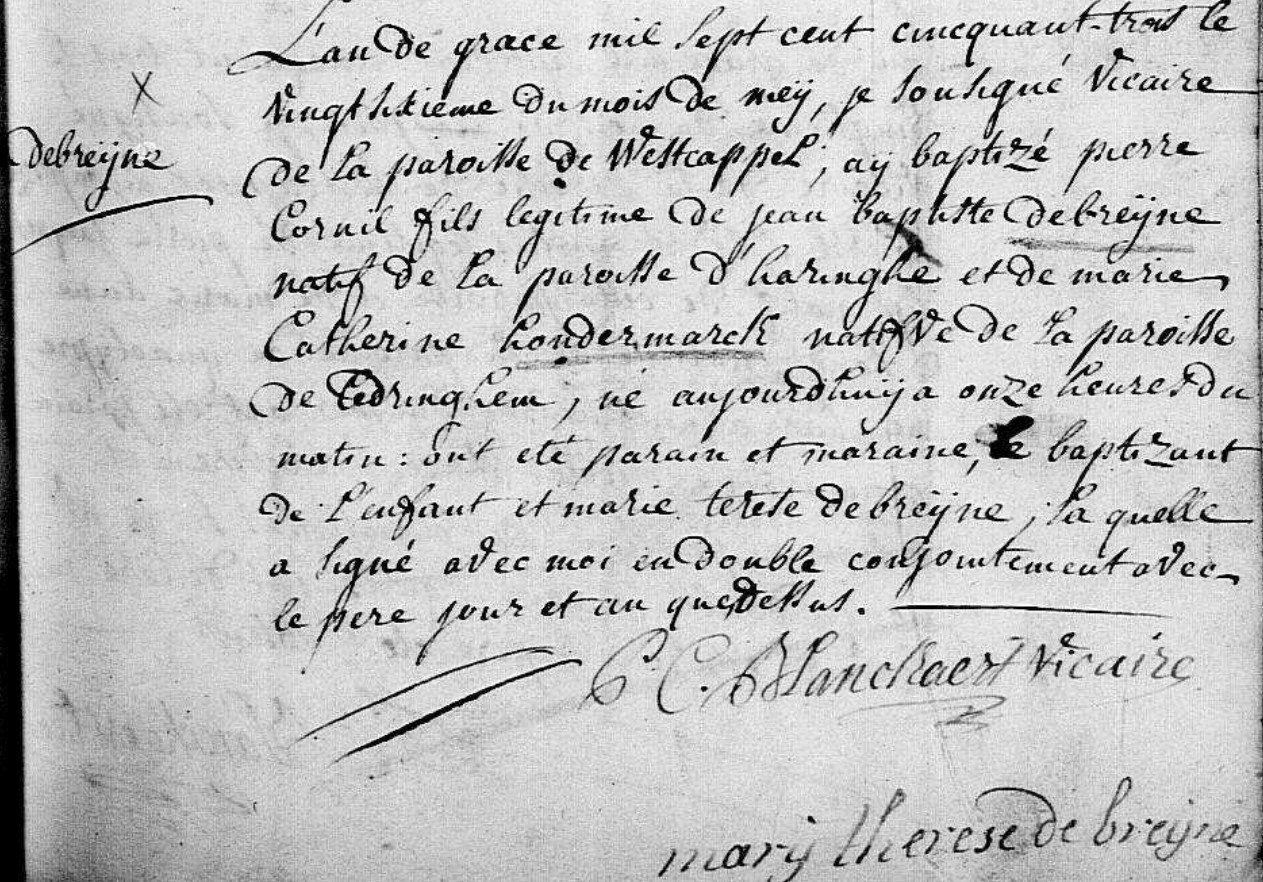 L'an de grace mil sept cent cincquant-trois le
vingt sixieme du mois de meÿ, je sousigné vicaire
X
debreÿne
de la paroisse de Westcappel, aÿ baptizé pierre
Cornil fils legitime de jean baptiste debreÿne
natif de la paroisse d'haringhe et de marie
Catherine hondermarck natifve de la paroisse
de Ledringhem, né aujourdhuÿ a onze heures du
matin: ont eté parain et maraine, le baptizant
de l'enfant et marie terese debreÿne, la quelle
a signé avec moi en double conjointement avec
le pere jour et an que dessus.
P C Blanckaert vicaire
marÿ therese de breÿne